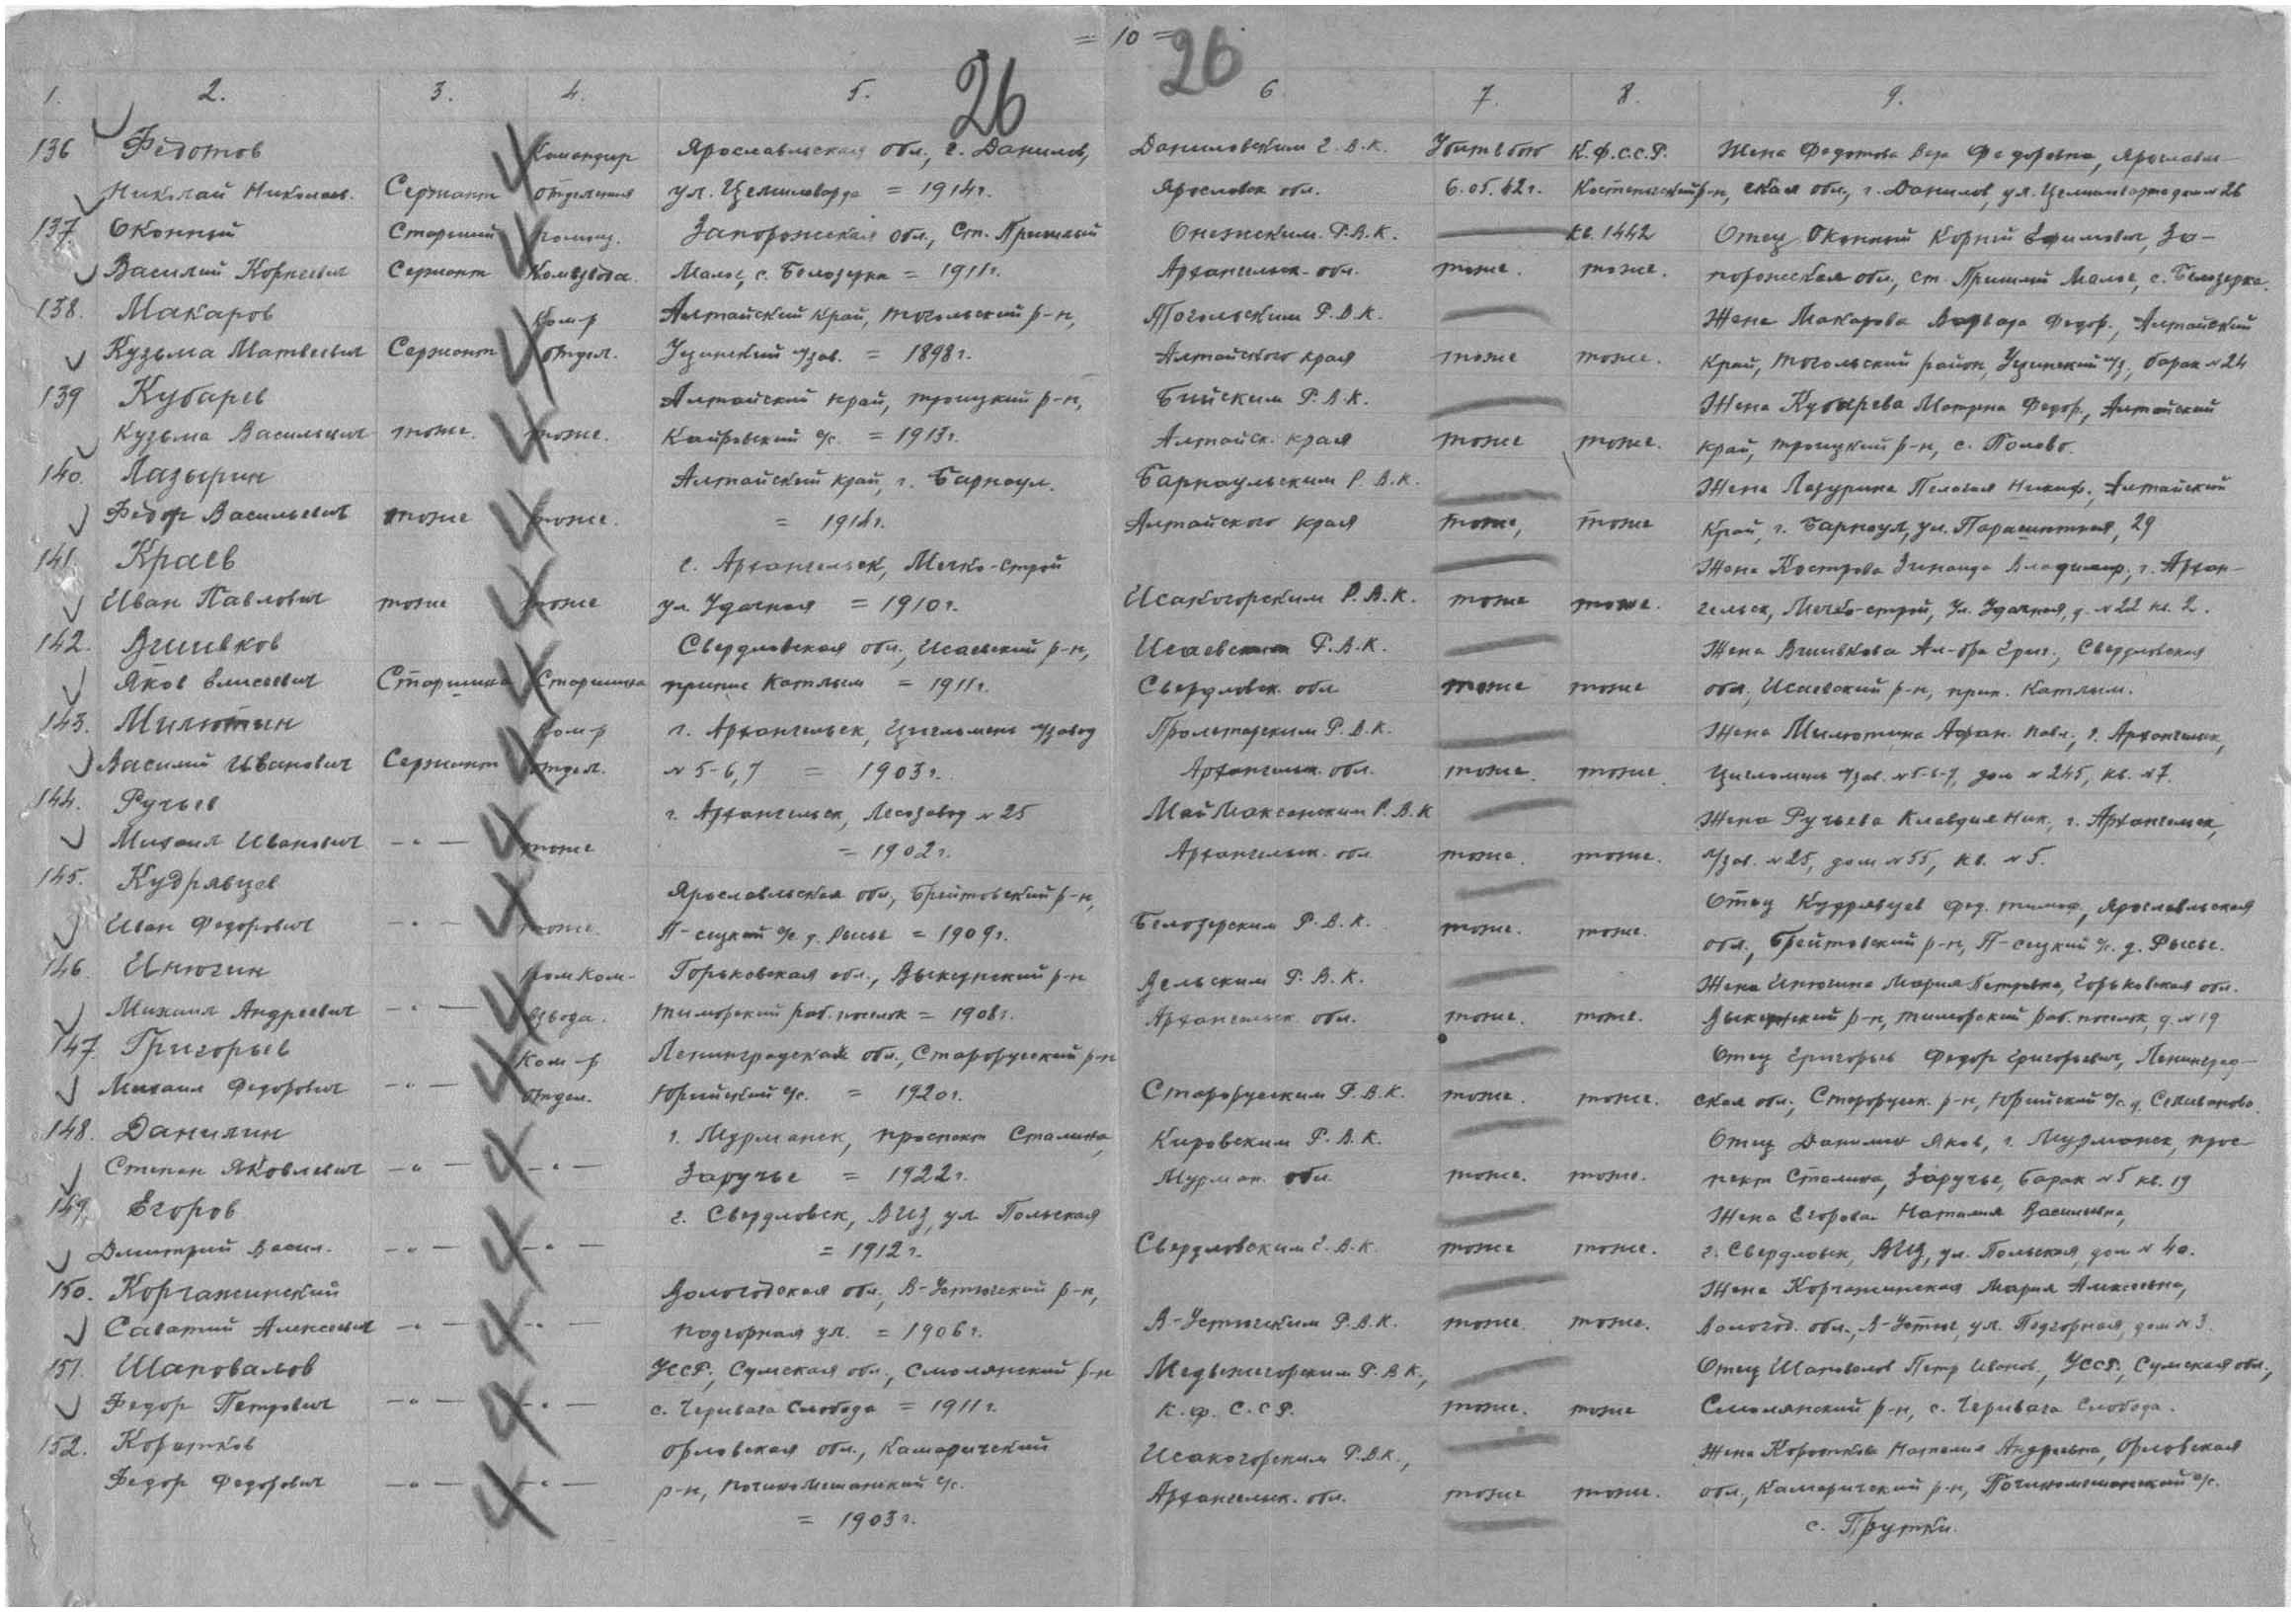 = 10 =
26 26
1. 2. 3. 4. 5. 6 7. 8. 9.
136 Федотов Командир Ярославльская обл., г. Данилов, Даниловским Г.В.К. Убит в бою К.Ф.С.С.Р. Жена Федотова Вера Федоровна, Ярославль-
Николай Николаев. Сержант отделения = 1914г. Ярославск обл. 6.05.42г. р-н, ская обл., г. Данилов, ул. дом № 26
137 Оконный Старший Помощ. Запорожская обл., ст. Пришиб Онежским Р.В.К. кв. 1442 Отец Оконный Корней Ефимович, За-
Василий Корнеевич Сержант Комвзвода. Малое, с. Белозерка = 1911г. Архангельск. обл. тоже. тоже. порожская обл., ст. Малое, с. Белозерка.
138. Макаров Ком-р Алтайский край, Тогольский р-н, Тогольским Р.В.К. Жена Макарова Варвара Федор., Алтайский
Кузьма Матвеевич Сержант отдел. = 1898г. Алтайского края тоже тоже. край, Тогольский район, барак № 24
139 Кубарев Алтайский край, Троицкий р-н, Бийским Р.В.К. Жена Кубарева Матрена Федор., Алтайский
Кузьма Васильевич тоже. тоже. с/с. = 1913г. Алтайск. края тоже тоже. край, Троицкий р-н, с. Попово.
140. Лазырин Алтайский край, г. Барнаул. Барнаульским Р.В.К. Жена Лазурина Пелагея Никиф., Алтайский
Федор Васильевич тоже тоже. = 1914г. Алтайского края тоже, тоже край, г. Барнаул, ул. Парашютная, 29
141. Краев г. Архангельск, Мечко-строй Жена Кострова Зинаида Владимир., г. Архан-
Иван Павлович тоже тоже ул Удачная = 1910г. Исакогорским Р.В.К. тоже тоже. гельск, Мечко-строй, ул. Удачная, д. № 22 кв. 2.
142. Вшивков Свердловская обл., Исаевский р-н, Исаевским Р.В.К. Жена Вшивкова Ал-дра Григ., Свердловская
Яков Елисеевич Старшина Старшина прииск Катлым = 1911г. Свердловск. обл тоже тоже обл, Исаевский р-н, приис. Катлым.
143. Милютин Ком-р г. Архангельск, Цигломень л/завод Пролетарским Р.В.К. Жена Милютина Афан. Павл., г. Архангельск,
Василий Иванович Сержант отдел. № 5-6,7 = 1903г. Архангельск. обл. тоже. тоже. Цигломень л/зав. № 5-6-7, дом № 245, кв. № 7.
144. Ручьев г. Архангельск, Лесозавод № 25 МайМаксанским Р.В.К Жена Ручьева Клавдия Ник., г. Архангельск,
Михаил Иванович -"- тоже = 1902г. Архангельск. обл тоже. тоже. л/зав. № 25, дом № 55, кв. № 5.
145. Кудрявцев Ярославльская обл, Брейтовский р-н, Отец Кудрявцев Фед. Тимоф., Ярославльская
Иван Федорович -"- тоже. П-сецкий с/с д. Рысье = 1909г. Белозерским Р.В.К. тоже. тоже. обл., Брейтовский р-н, П-сецкий с/с. д. Рысье.
146. Инючин Пом Ком- Горьковская обл., Выксунский р-н Вельским Р.В.К. Жена Инючина Мария Петровна, Горьковская обл.
Михаил Андреевич -"- взвода. раб. поселок = 1908г. Архангельск обл. тоже. тоже. Выксунский р-н, раб. поселок, д. № 19
147. Григорьев Ком-р Ленинградская обл., Старорусский р-н Отец Григорьев Федор Григорьевич, Ленинград-
Михаил Федорович -"- отдел. Юрьийский с/с. = 1920г. Старорусским Р.В.К. тоже. тоже. ская обл., Старорусск. р-н, Юрьийский с/с д. Селиваново.
148. Данилин г. Мурманск, проспект Сталина, Кировским Р.В.К. Отец Данилин Яков, г. Мурманск, прос-
Степан Яковлевич -"- -"- Заручье = 1922г. Мурман. обл. тоже. тоже. пект Сталина, Заручье, барак № 5 кв. 19
149. Егоров г. Свердловск, ВИЗ, ул. Польская Жена Егорова Наталия Васильевна,
Дмитрий Васил. -"- -"- = 1912г. Свердловским Г.В.К. тоже тоже. г. Свердловск, ВИЗ, ул. Польская, дом № 40.
150. Корчажинский Вологодская обл., В-Устюгский р-н, Жена Корчажинская Мария Алексеевна,
Саватий Алексеевич -"- -"- Подгорная ул. = 1906г. В-Устюгским Р.В.К. тоже. тоже. Вологод. обл., В-Устюг, ул. Подгорная, дом № 3.
151. Шаповалов УССР, Сумская обл., Смолянский р-н Медвежегорским Р.В.К., Отец Шаповалов Петр Иванов., УССР, Сумская обл.,
Федор Петрович -"- -"- с. Слобода = 1911г. К.Ф.С.С.Р. тоже. тоже Смолянский р-н, с. Слобода.
152. Коротков Орловская обл., Камаричский Исакогорским Р.В.К., Жена Короткова Наталия Андреевна, Орловская
Федор Федорович -"- -"- р-н, с/с. Архангельск. обл. тоже тоже. обл., Камаричский р-н, с/с.
= 1903г. с. Прутки.